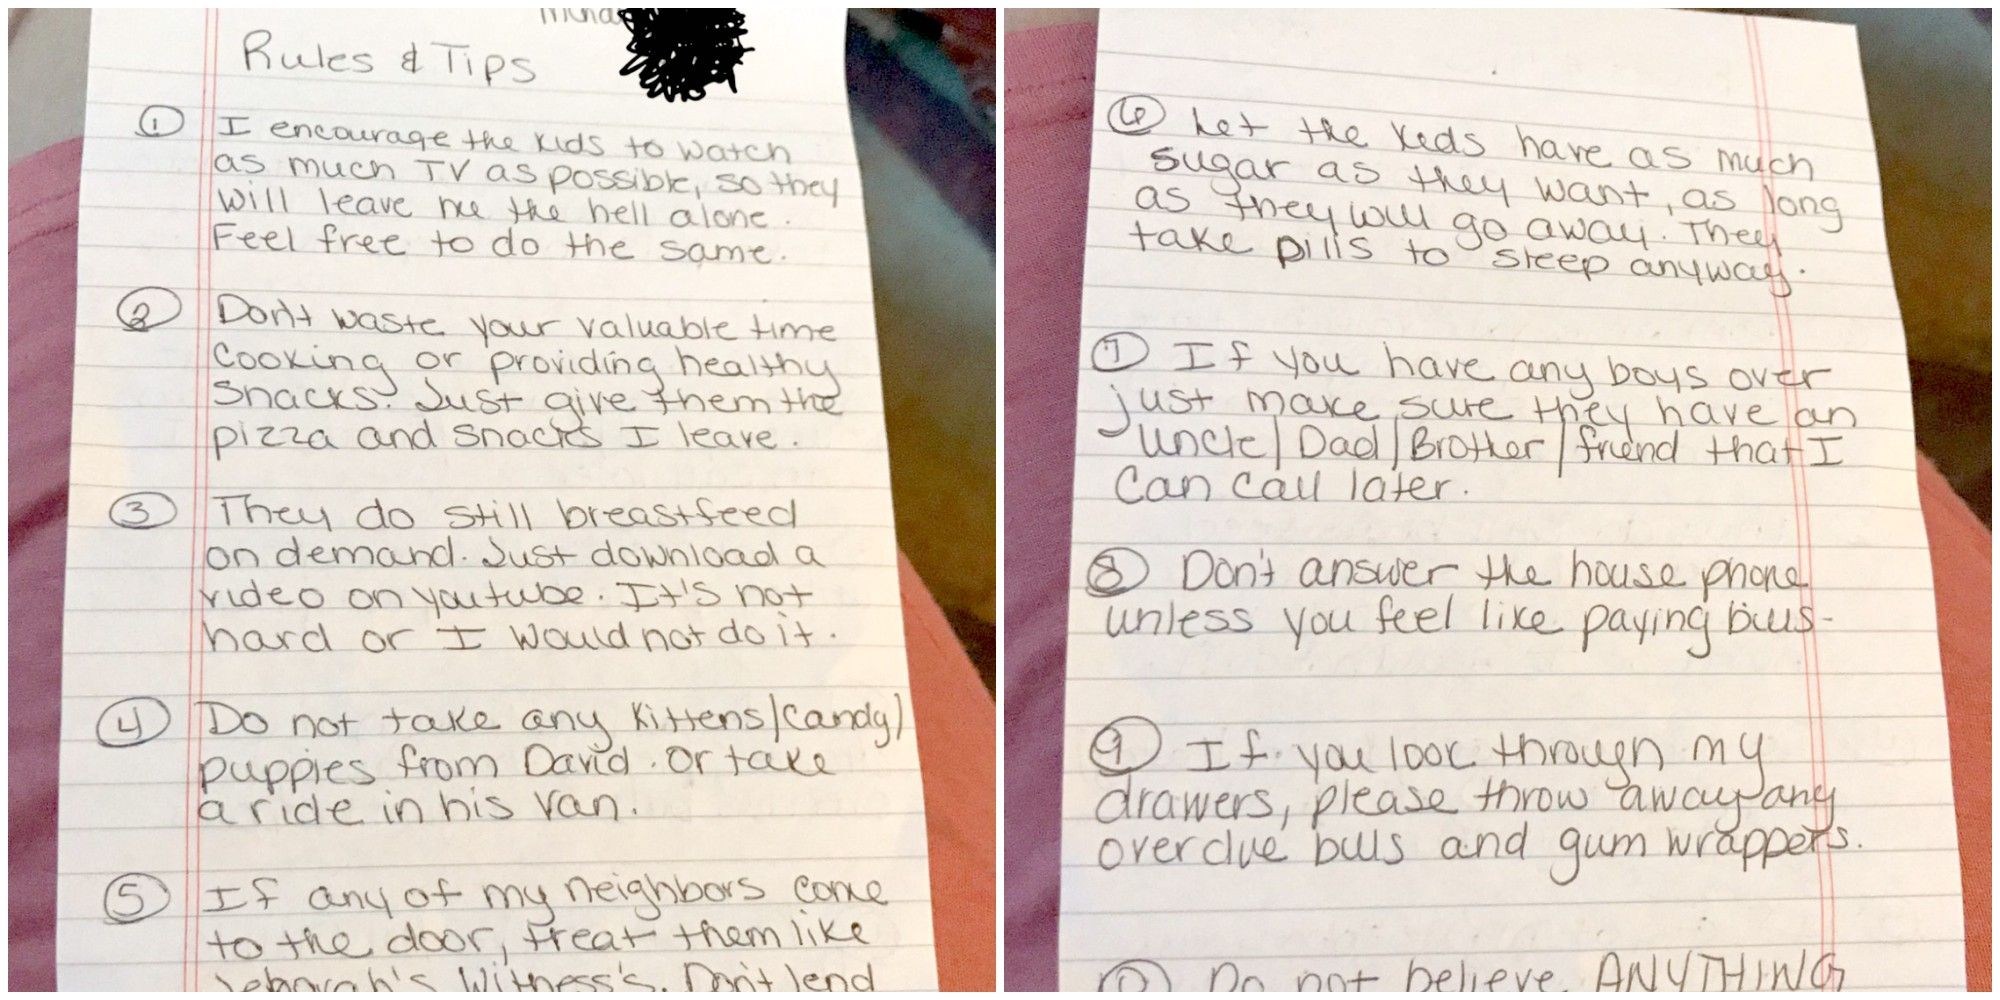 Rules & Tips
① I encourage the kids to watch
as much TV as possible, so they
will leave me the hell alone.
Feel free to do the same.
② Don't waste your valuable time
cooking or providing healthy
snacks. Just give them the
pizza and snacks I leave.
③ They do still breastfeed
on demand. Just download a
video on youtube. It's not
hard or I would not do it.
④ Do not take any kittens/candy/
puppies from David. Or take
a ride in his van.
⑤ If any of my neighbors come
to the door, treat them like
Jehovah's Witness's. Don't lend
⑥ Let the kids have as much
sugar as they want, as long
as they will go away. They
take pills to sleep anyway.
⑦ If you have any boys over
just make sure they have an
uncle/Dad/Brother/friend that I
can call later.
⑧ Don't answer the house phone
unless you feel like paying bills-
⑨ If you look through my
drawers, please throw away any
overdue bills and gum wrappers.
Do not believe ANYTHING